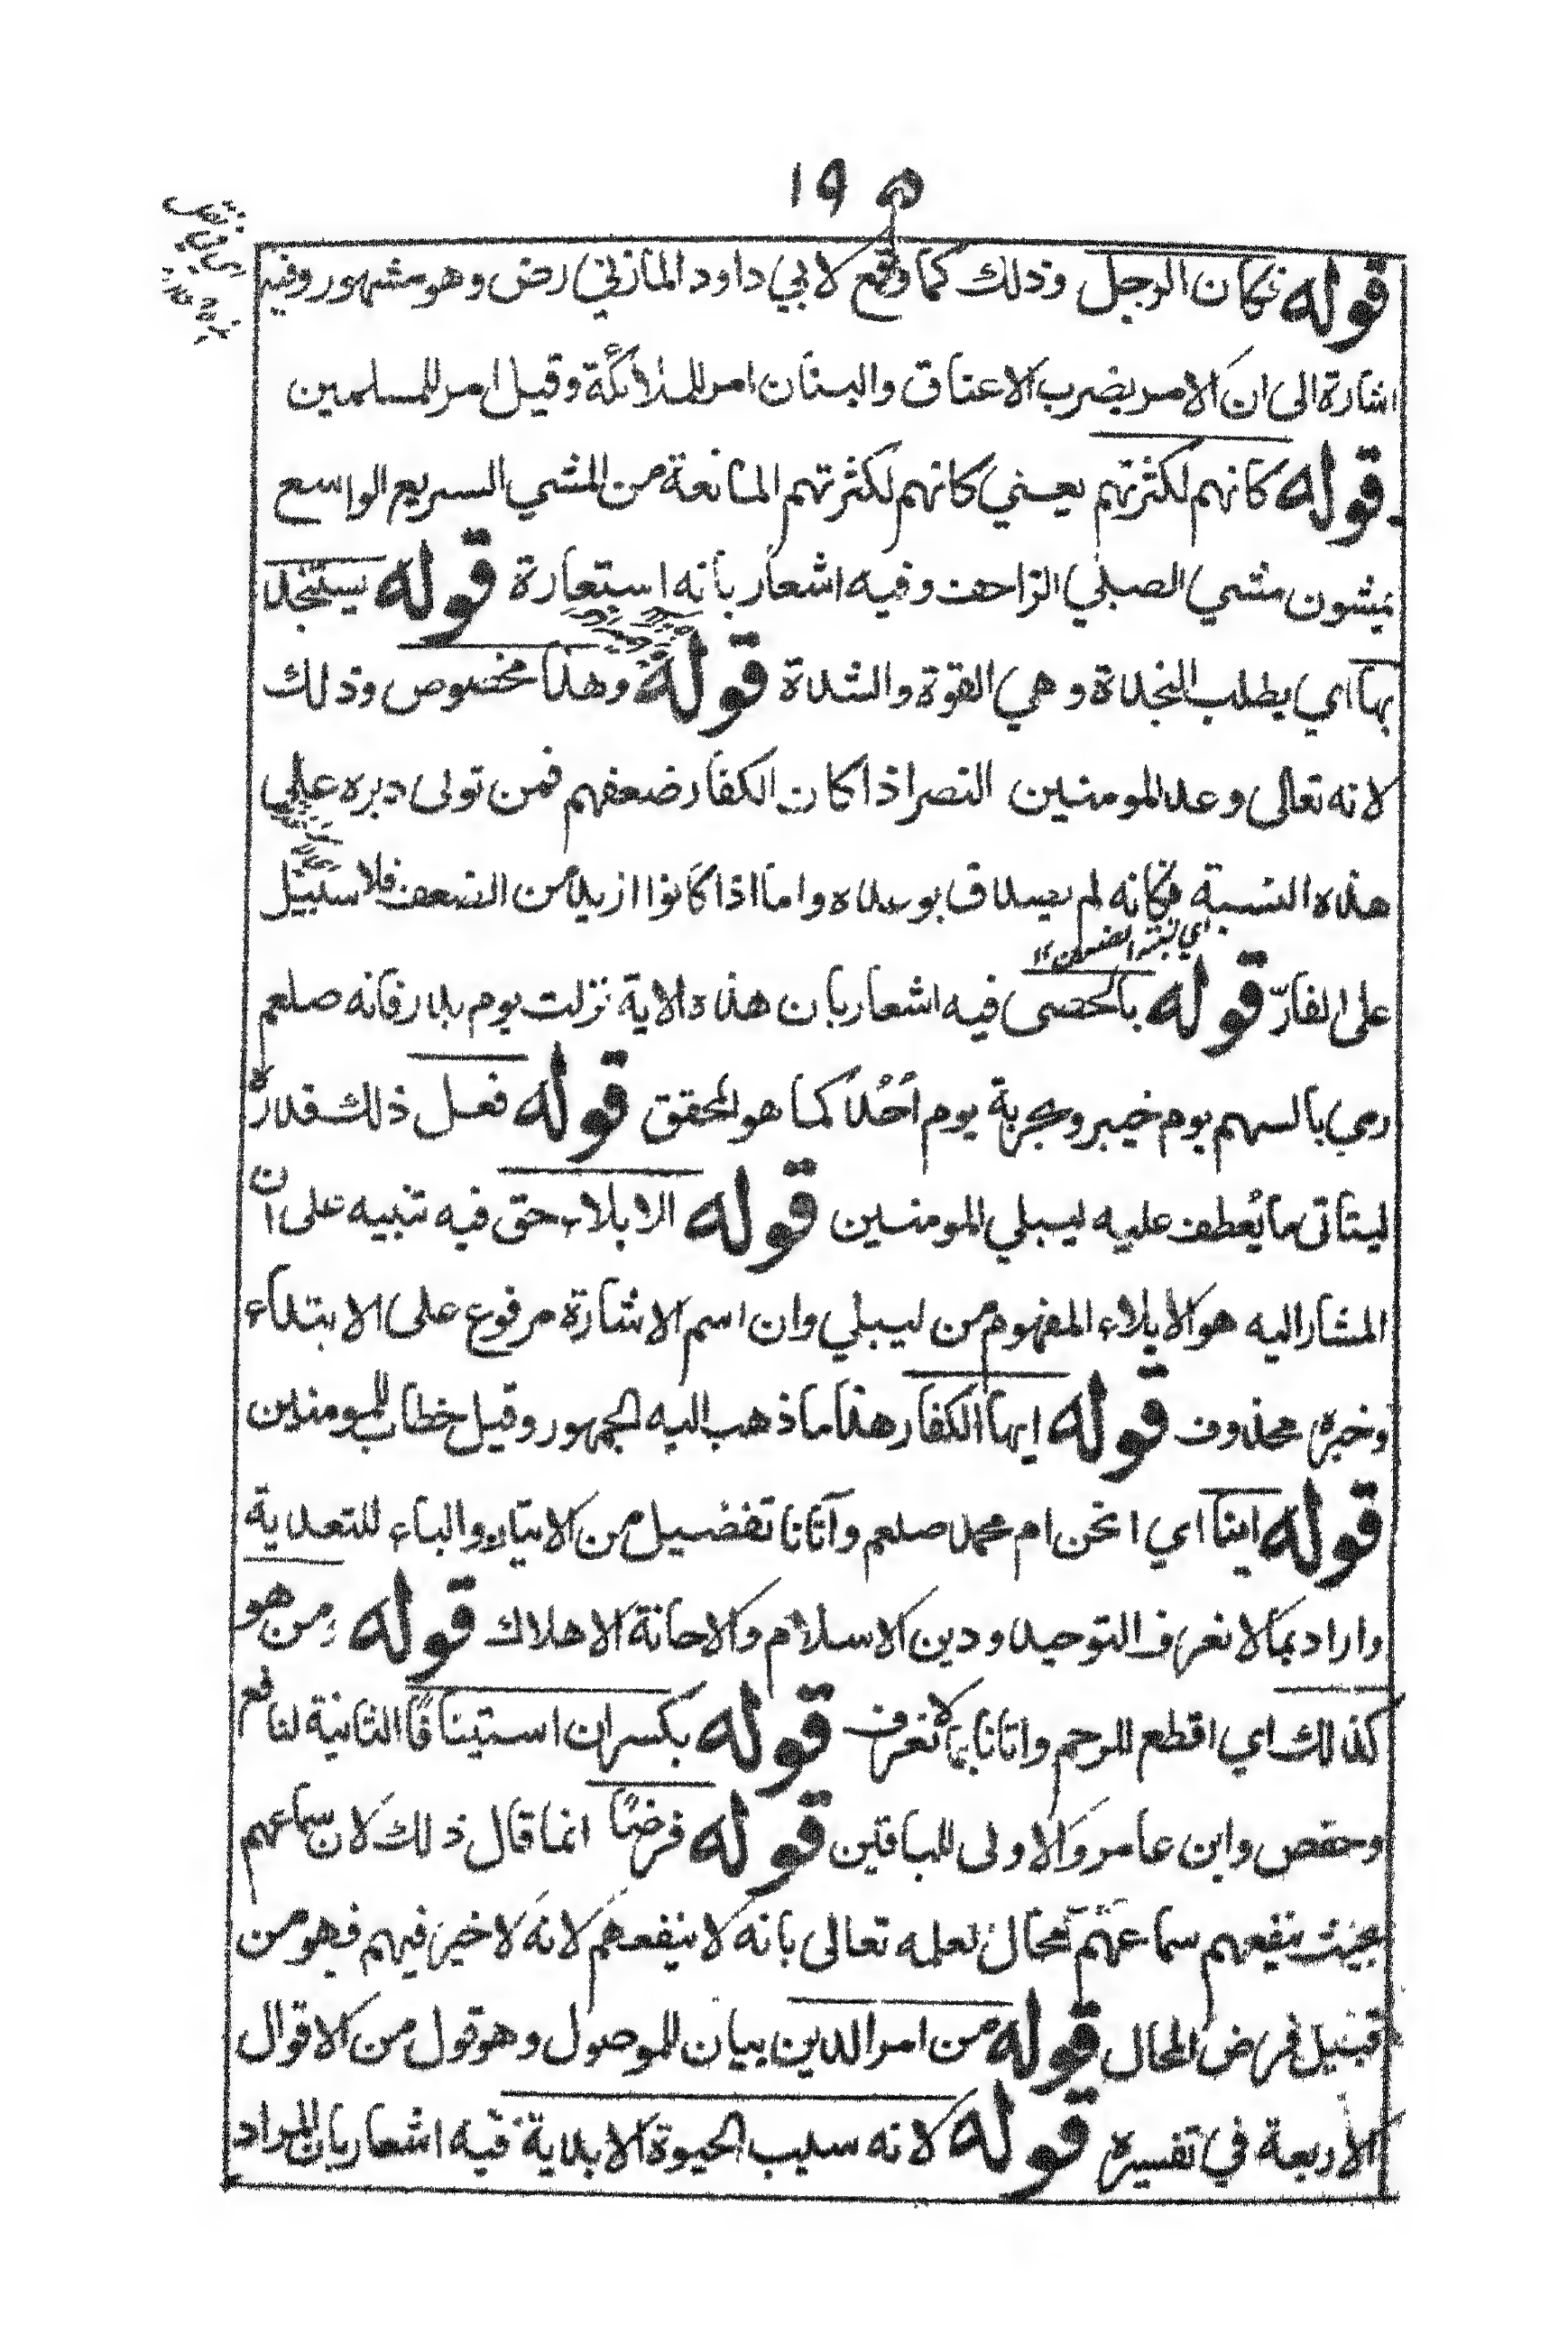 ١٩
قوله فكان الرجل وذلك كما وقع لابي داود المازني رض وهو مشهور وفيه
اشارة الى ان الامر بضرب الاعناق والبنان امر للملائكة وقيل امر للمسلمين
قوله كانهم لكثرتهم يعني كانهم لكثرتهم المانعة من المشي السريع الواسع
يمشون مشي الصبلي الزاحف وفيه اشعار بانه استعارة قوله يستنجد
بها اي يطلب النجدة وهي القوة والشدة قوله وهذا مخصوص وذلك
لانه تعالى وعد المومنين النصر اذا كان الكفار ضعفهم فمن تولى دبره على
هذه النسبة فكانه لم يصدق بوعده واما اذا كانوا ازيد من الضعف فلا سبيل
على الفارّ قوله بالحصى فيه اشعار بان هذه الاية نزلت يوم بدر فانه صلعم
رمي بالسهم يوم خيبر وبحربة يوم اُحُد كما هو المحقق قوله فعل ذلك قدره
ليتاتى ما يُعطف عليه ليبلي المومنين قوله الابلاء حق فيه تنبيه على ان
المشار اليه هو الابلاء المفهوم من ليبلي وان اسم الاشارة مرفوع على الابتداء
وخبره محذوف قوله ايها الكفار هذا ما ذهب اليه الجمهور وقيل خطاب للمومنين
قوله اينا اي انحن ام محمد صلعم وآتانا تفضيل من الاتيان والباء للتعدية
واراد بما لا نعرف التوحيد ودين الاسلام والاحانة الاهلاك قوله من هو
كذلك اي اقطع للرحم واتانا بما لا نعرف قوله بكسر ان استينافًا الثانية لنافع
وحفص وابن عامر والاولى للباقين قوله فرضًا انما قال ذلك لان سماعهم
بحيث ينفعهم سماعهم محال لعلمه تعالى بانه لا ينفعهم لانه لا خير فيهم فهو من
قبيل فرض المحال قوله من امر الدين بيان للموصول وهو قول من الاقوال
الاربعة في تفسيره قوله لانه سبب الحيوة الابدية فيه اشعار بان المراد